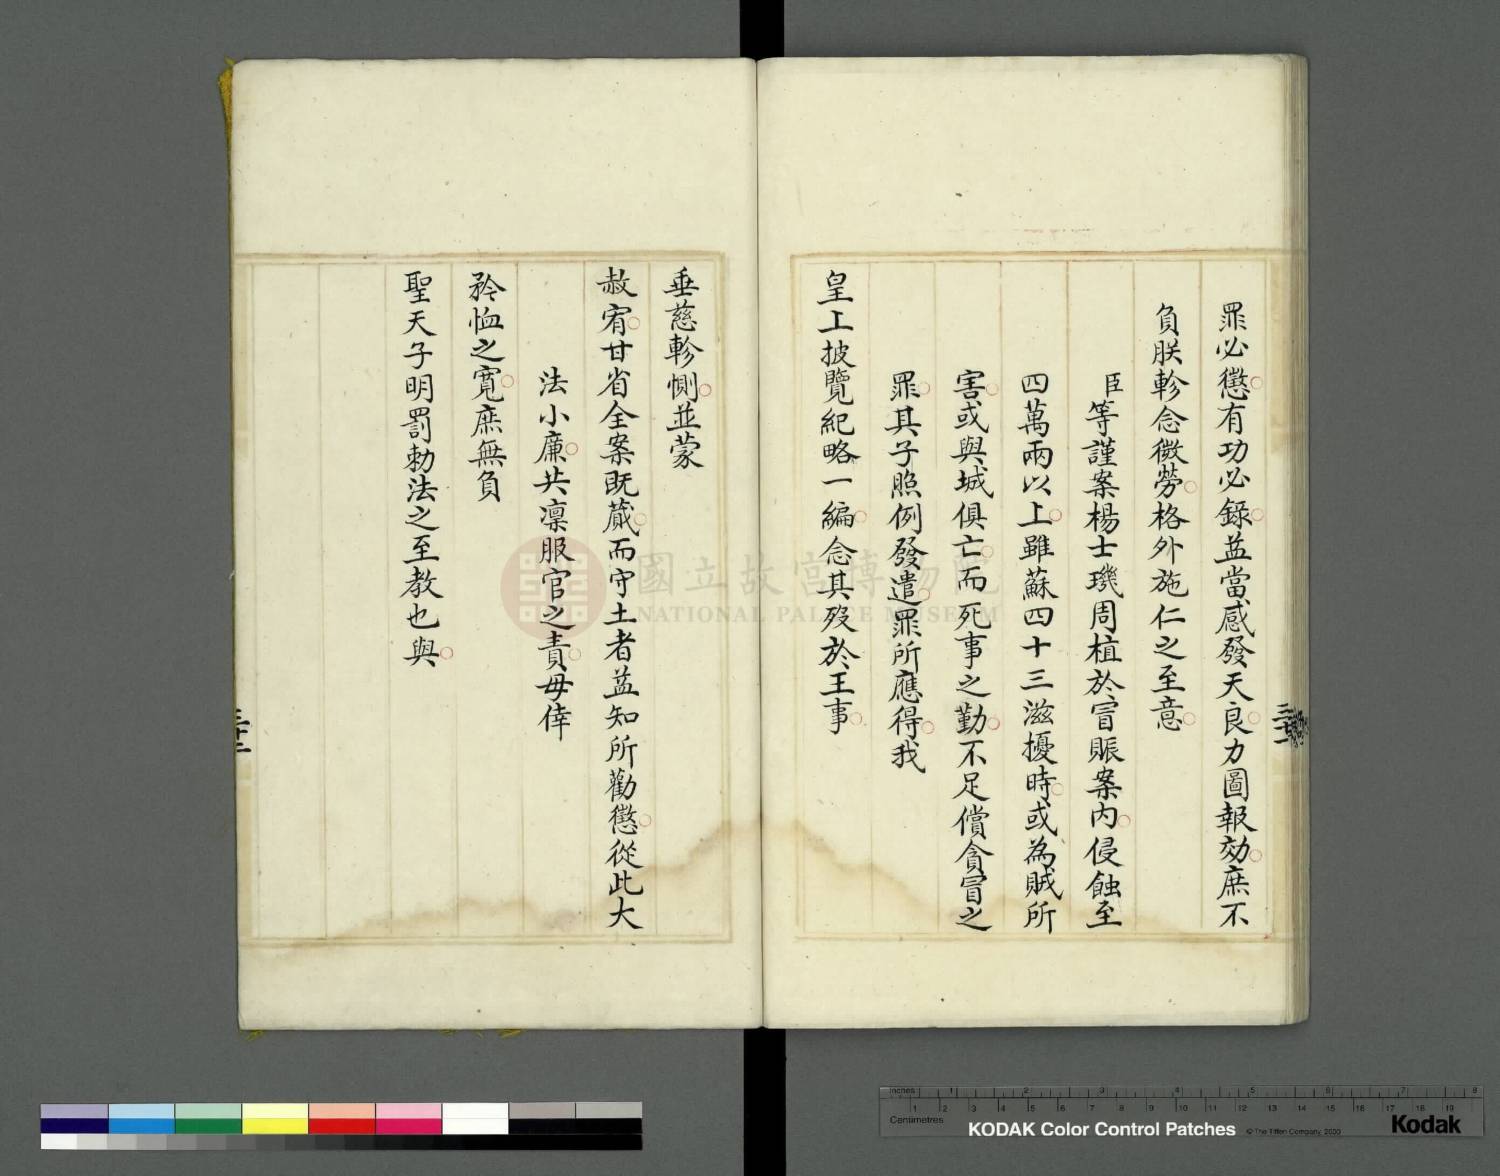 罪必懲有功必錄益當感發天良力圖報効庶不
負朕軫念微勞格外施仁之至意
臣等謹案楊士璣周植於冒賑案內侵蝕至
四萬兩以上雖蘇四十三滋擾時或為賊所
害或與城俱亡而死事之勤不足償貪冒之
罪其子照例發遣罪所應得我
皇上披覽紀略一編念其歿於王事
三十
垂慈軫惻並蒙
赦宥甘省全案既蕆而守土者益知所勸懲從此大
法小廉共凜服官之責毋倖
矜恤之寬庶無負
聖天子明罰勅法之至教也與
國立故宮博物院
NATIONAL PALACE MUSEUM
Inches 1 2 3 4 5 6 7 8
Centimetres 1 2 3 4 5 6 7 8 9 10 11 12 13 14 15 16 17 18 19
KODAK Color Control Patches © The Tiffen Company, 2000 Kodak